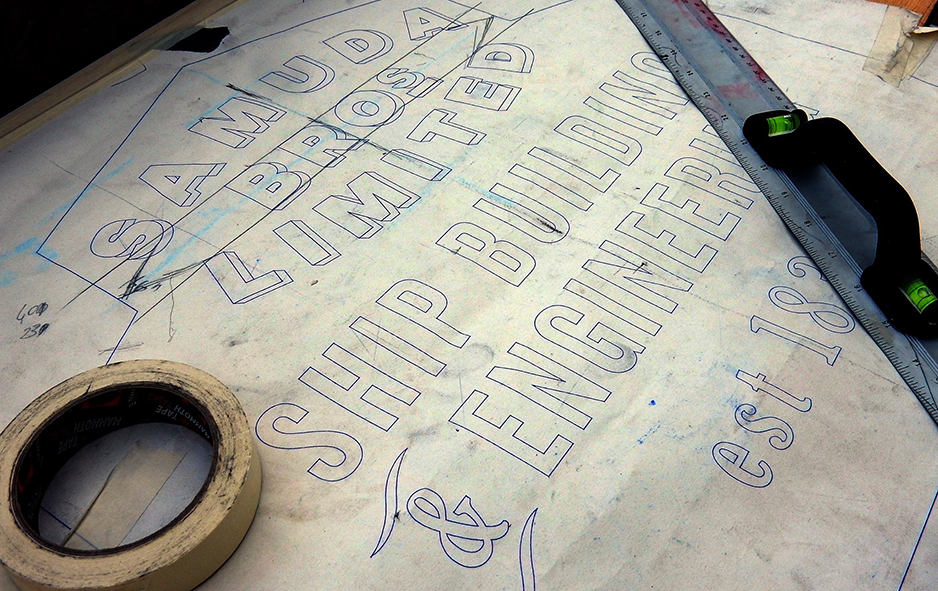 SAMUDA
BROS
LIMITED
SHIP BUILDING
& ENGINEERI
est 182
400
230
MAMMOTH
TAPE